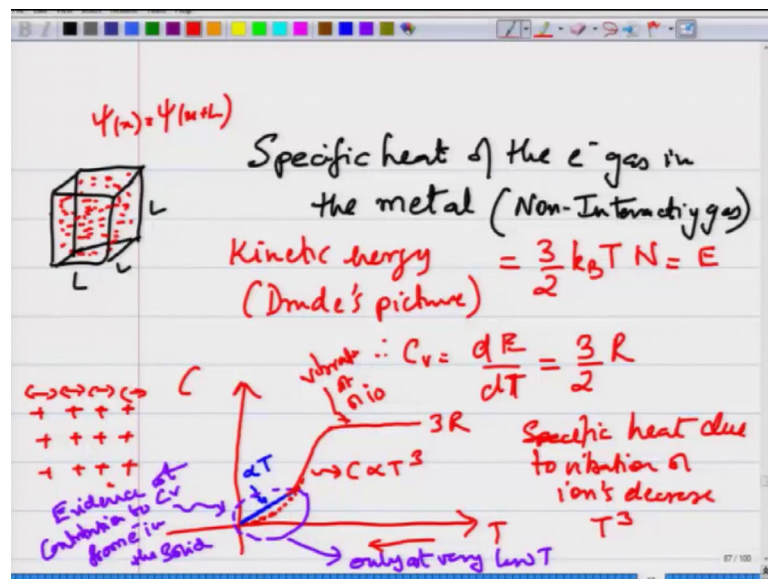 Ψ(x) = Ψ(x+L)
Specific heat of the e⁻ gas in
the metal (Non-Interactiy gas)
L
L
L
Kinetic energy = 3/2 k_B T N = E
(Drude's picture)
∴ C_v = dE/dT = 3/2 R
C
3R
αT
→ C ∝ T³
T
+ + + +
+ + + +
+ + + +
Specific heat due
to vibration of
ion's decrease
T³
Evidence of
Contribution to Cv
from e⁻ in
the Solid
only at very low T
87 / 100